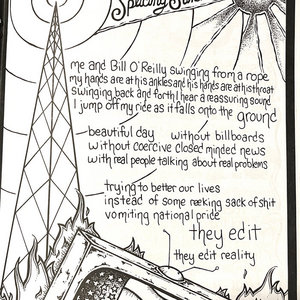 me and Bill O'Reilly swinging from a rope
my hands are at his ankles and his hands are at his throat
swinging back and forth I hear a reassuring sound
I jump off my ride as it falls onto the ground
beautiful day without billboards
without coercive closed minded news
with real people talking about real problems
trying to better our lives
instead of some reeking sack of shit
vomiting national pride
they edit
they edit reality